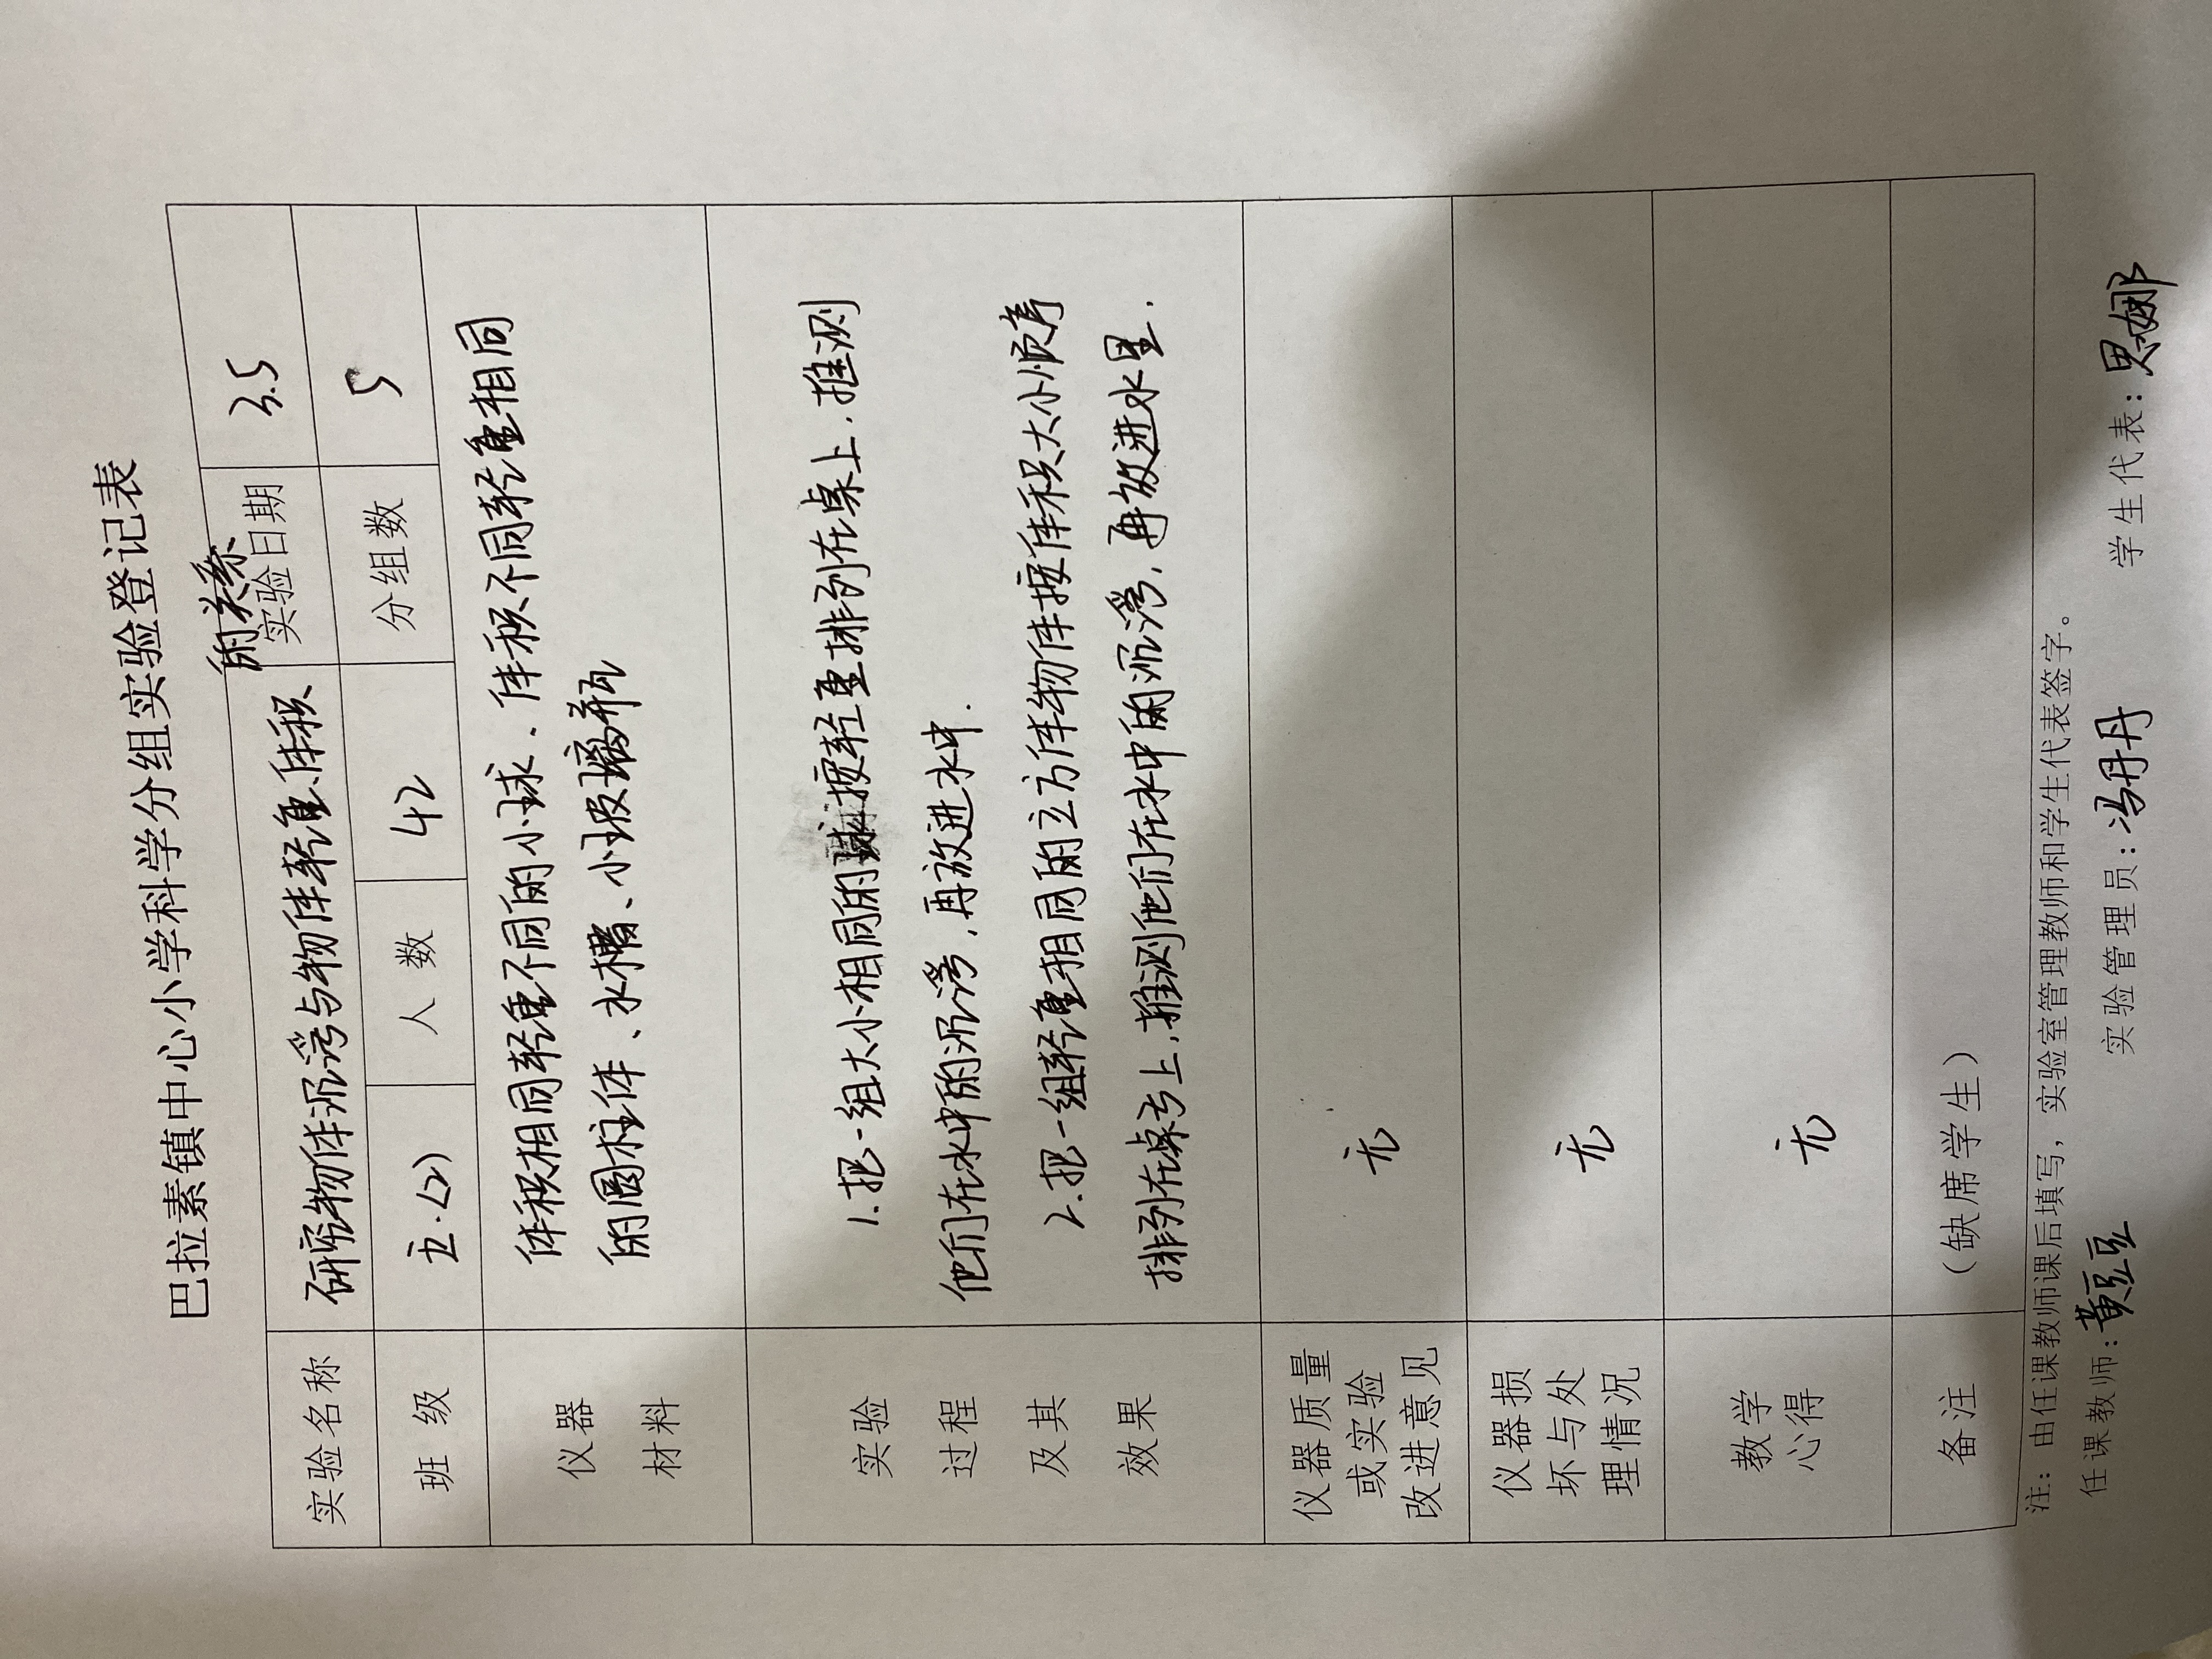 巴拉素镇中心小学科学分组实验登记表
实验名称 研究物体沉浮与物体轻重、体积的关系 实验日期 3.5
班级 五.(2) 人数 42 分组数 5
仪器材料
体积相同轻重不同的小球、体积不同轻重相同
的圆柱体、水槽、小玻璃瓶
实验过程及其效果
1.把一组大小相同的球按轻重排列在桌上.推测
他们在水中的沉浮,再放进水中.
2.把一组轻重相同的立方体物体按体积大小顺序
排列在桌上,推测他们在水中的沉浮,再放进水里.
仪器质量或实验改进意见 无
仪器损坏与处理情况 无
教学心得 无
备注 （缺席学生）
注：由任课教师课后填写，实验室管理教师和学生代表签字。
任课教师：黄豆豆 实验管理员：冯丹丹 学生代表：思娜